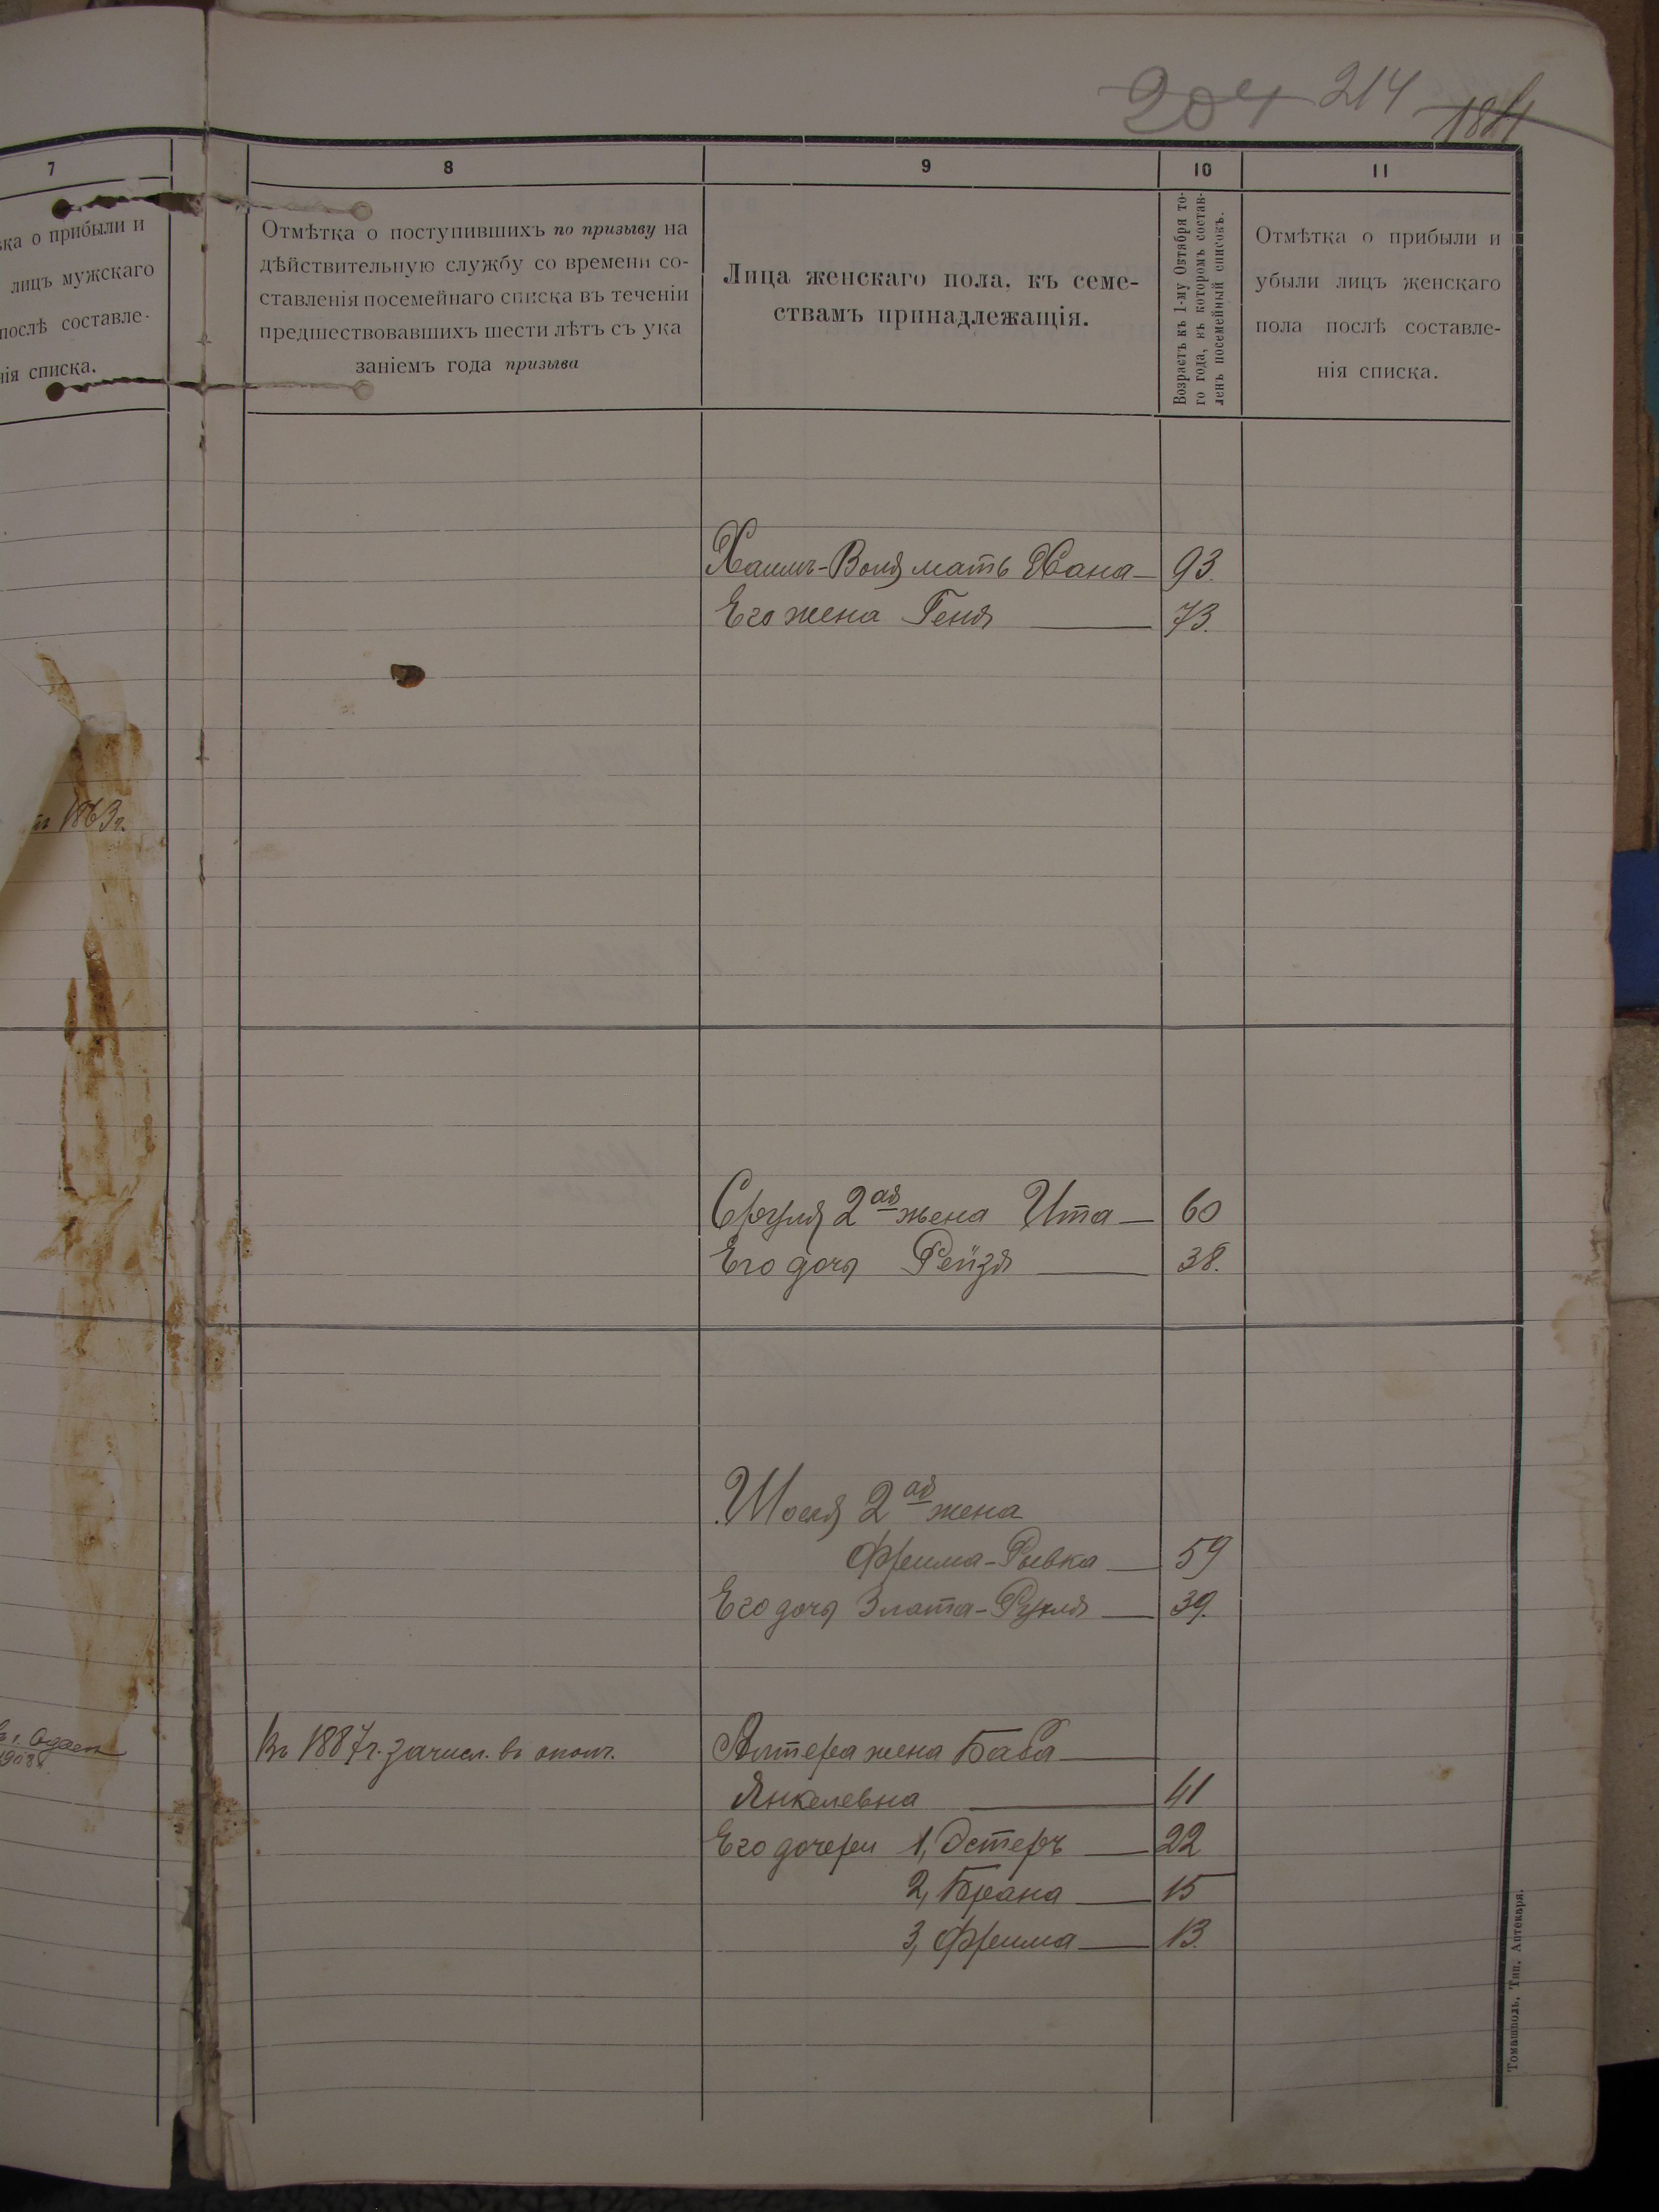 204 214 184
7
8
9
10
11
вка о прибыли и
лицъ мужскаго
послѣ составле-
нія списка.
Отмѣтка о поступившихъ по призыву на
дѣйствительную службу со времени со-
ставленія посемейнаго списка въ теченіи
предшествовавшихъ шести лѣтъ съ ука
заніемъ года призыва
Лица женскаго пола, къ семе-
ствамъ принадлежащія.
Возрастъ къ 1-му Октября то-
го года, въ которомъ состав-
ленъ посемейный списокъ.
Отмѣтка о прибыли и
убыли лицъ женскаго
пола послѣ составле-
нія списка.
Хаимъ-Воля мать Хана — 93.
Его жена Геня — 73.
1863 г.
Сруля 2ая жена Ита — 60
Его дочь Рейзя — 38.
2ая жена
Фрима-Рывка — 59
Его дочь Злата-Рухля — 39.
1908
Въ 1887 г. зачисл. въ опол. Алтера жена Баба —
Янкелевна — 41
Его дочери 1, Эстеръ — 22
2, Брана — 15
3, Фрима — 13.
Томашполь, Тип. Аптекаря.